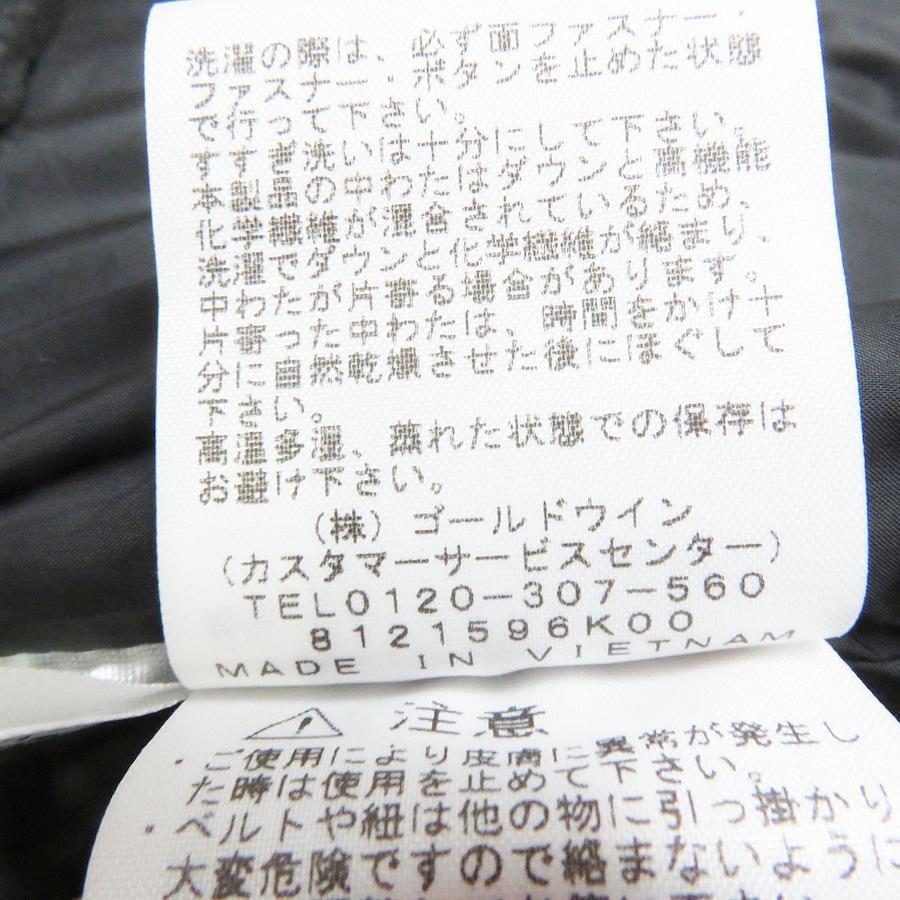 洗濯の際は、必ず面ファスナー・
ファスナー・ボタンを止めた状態
で行って下さい。
すすぎ洗いは十分にして下さい。
本製品の中わたはダウンと高機能
化学繊維が混合されているため、
洗濯でダウンと化学繊維が絡まり、
中わたが片寄る場合があります。
片寄った中わたは、時間をかけ十
分に自然乾燥させた後にほぐして
下さい。
高温多湿、蒸れた状態での保存は
お避け下さい。
(株) ゴールドウイン
(カスタマーサービスセンター)
TEL0120-307-560
8121596K00
MADE IN VIETNAM
注意
・ご使用により皮膚に異常が発生し
た時は使用を止めて下さい。
・ベルトや紐は他の物に引っ掛かり
大変危険ですので絡まないように